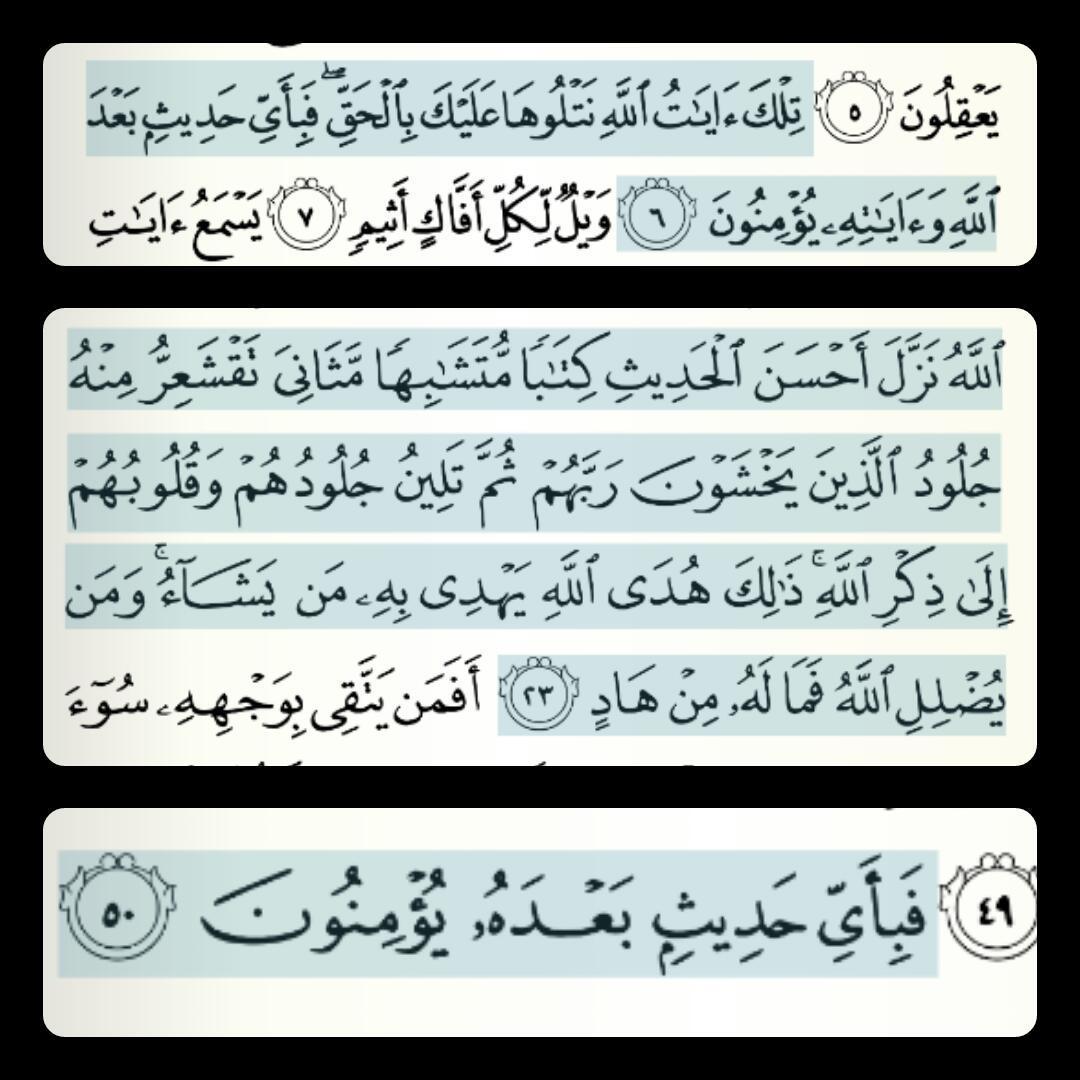 يَعْقِلُونَ ٥ تِلْكَ ءَايَـٰتُ ٱللَّهِ نَتْلُوهَا عَلَيْكَ بِٱلْحَقِّ ۖ فَبِأَىِّ حَدِيثٍۭ بَعْدَ
ٱللَّهِ وَءَايَـٰتِهِۦ يُؤْمِنُونَ ٦ وَيْلٌ لِّكُلِّ أَفَّاكٍ أَثِيمٍ ٧ يَسْمَعُ ءَايَـٰتِ
ٱللَّهُ نَزَّلَ أَحْسَنَ ٱلْحَدِيثِ كِتَـٰبًا مُّتَشَـٰبِهًا مَّثَانِىَ تَقْشَعِرُّ مِنْهُ
جُلُودُ ٱلَّذِينَ يَخْشَوْنَ رَبَّهُمْ ثُمَّ تَلِينُ جُلُودُهُمْ وَقُلُوبُهُمْ
إِلَىٰ ذِكْرِ ٱللَّهِ ۚ ذَٰلِكَ هُدَى ٱللَّهِ يَهْدِى بِهِۦ مَن يَشَآءُ ۚ وَمَن
يُضْلِلِ ٱللَّهُ فَمَا لَهُۥ مِنْ هَادٍ ٢٣ أَفَمَن يَتَّقِى بِوَجْهِهِۦ سُوٓءَ
٤٩ فَبِأَىِّ حَدِيثٍۭ بَعْدَهُۥ يُؤْمِنُونَ ٥٠